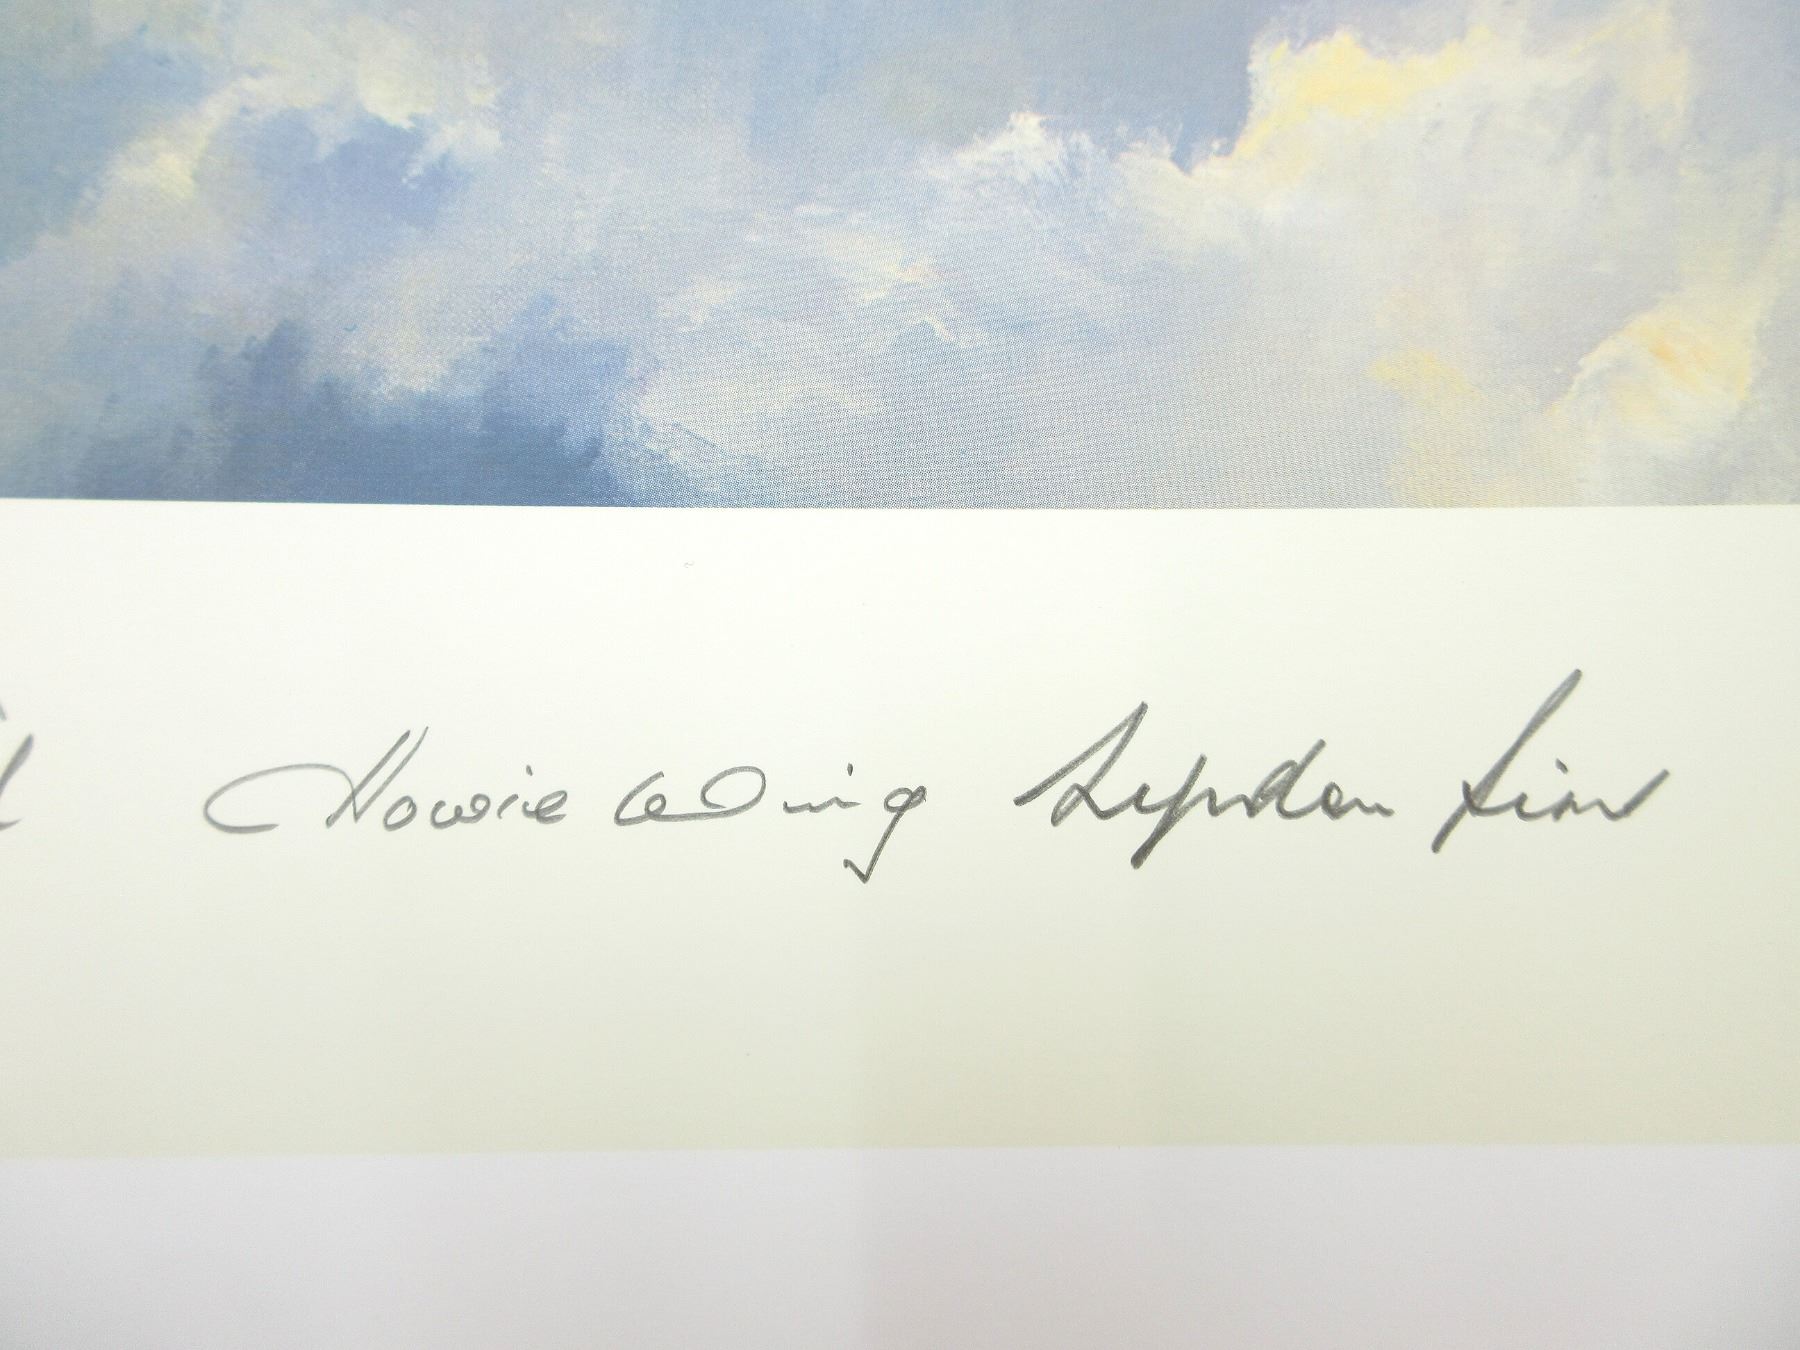 Howie Wing Lyndon Sims